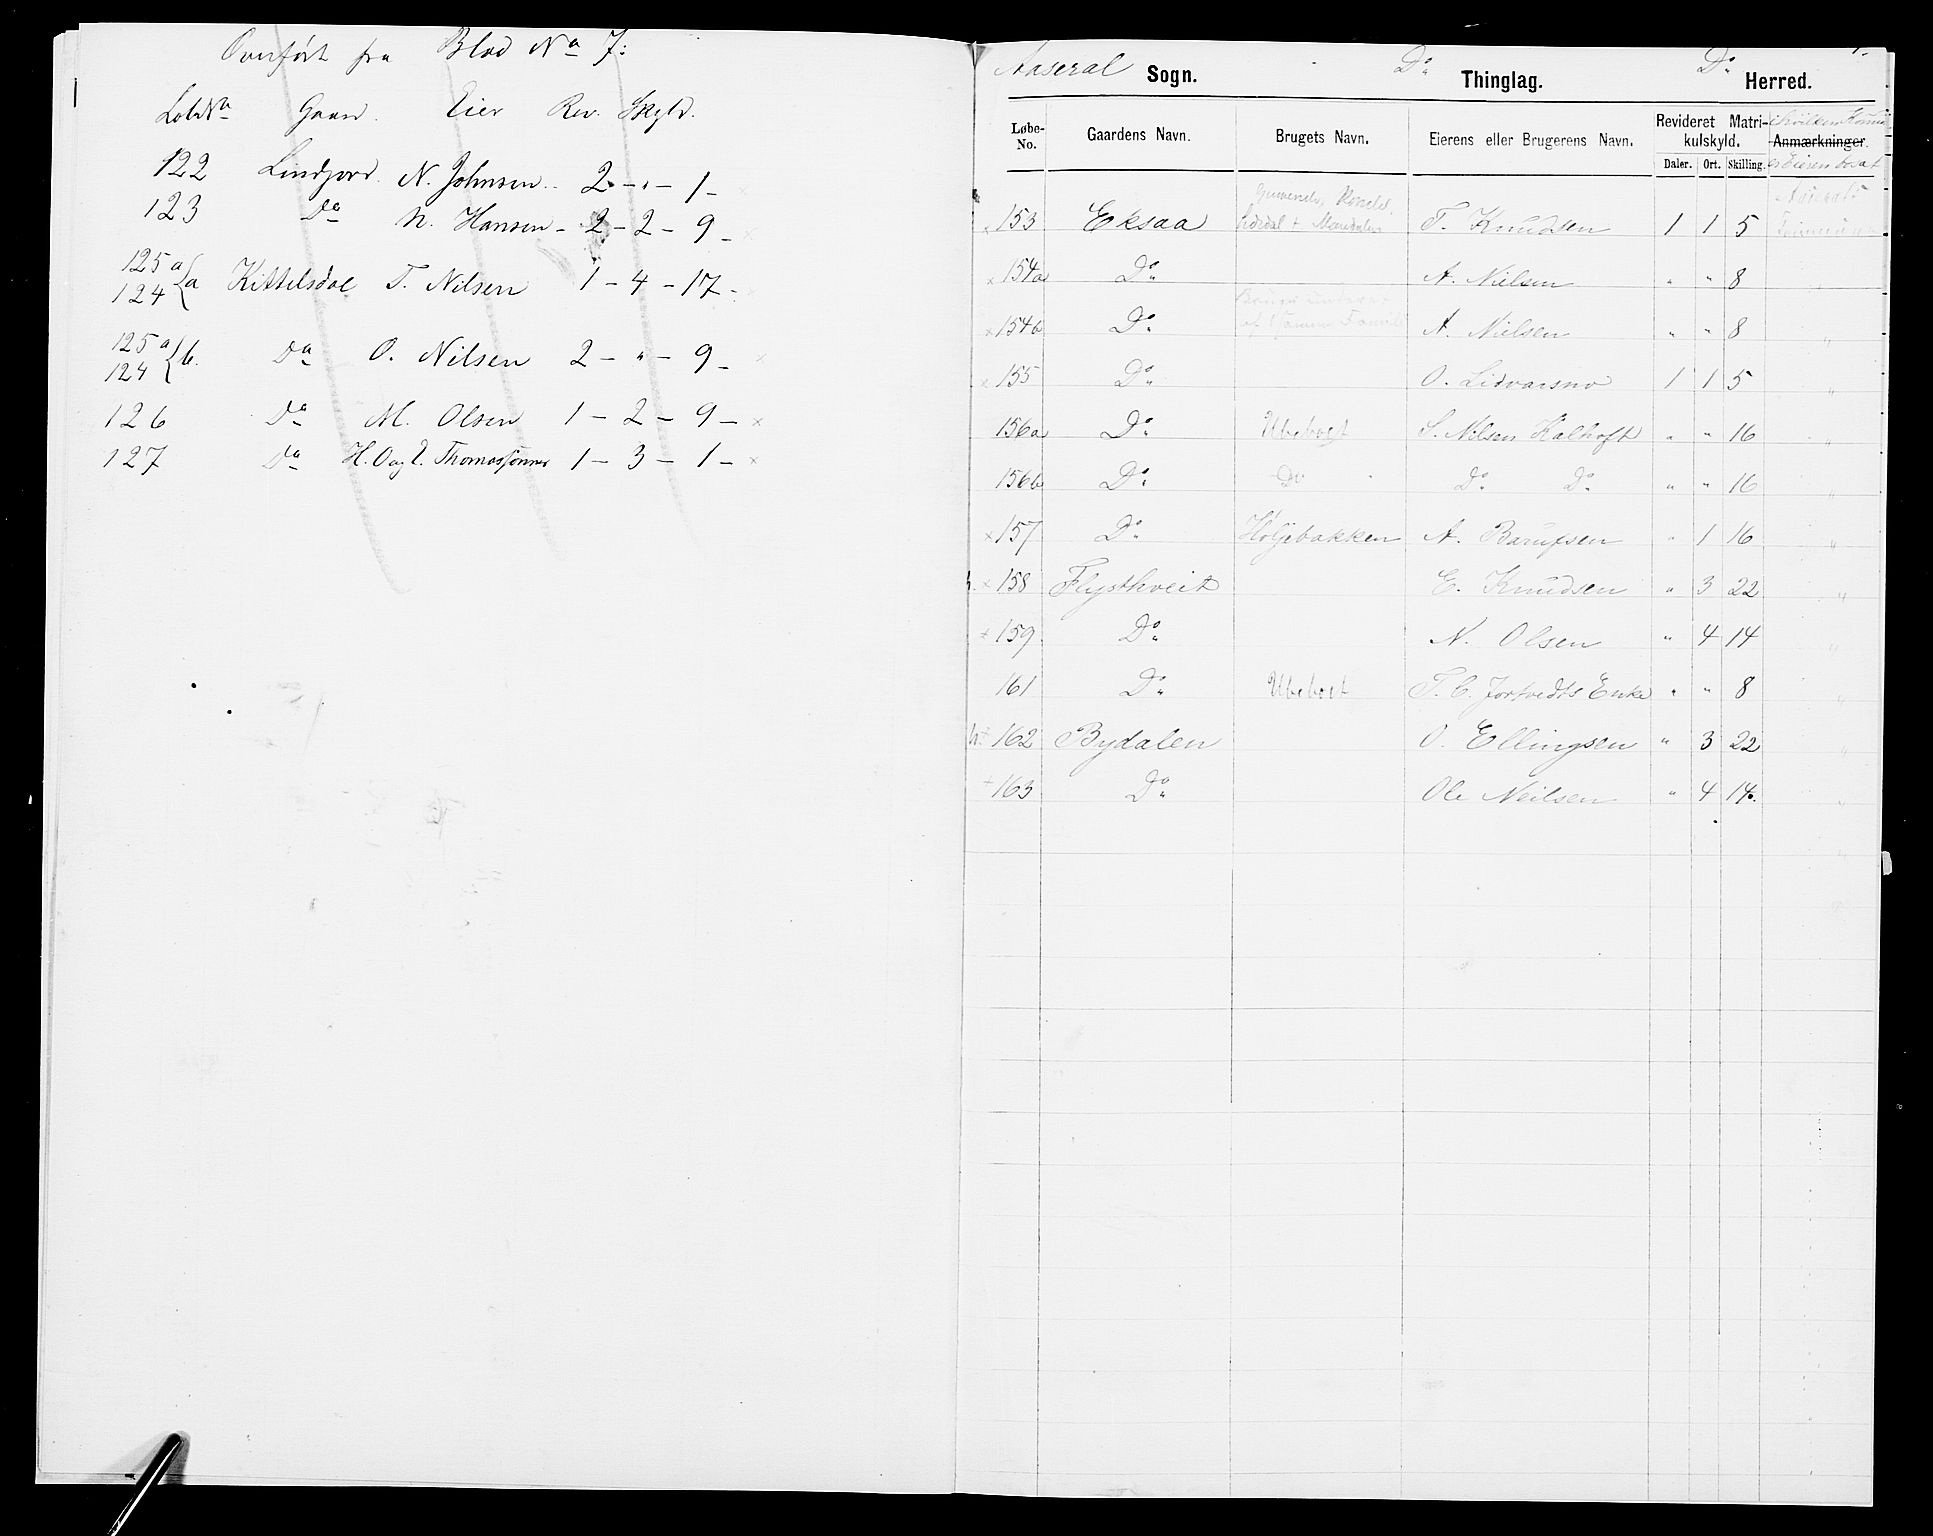 Overført fra Blad No 7:
LøbeNo Gaard. Eier Rev. Skyld.
122 Lindjord. N. Johnsen.. 2 - " - 1 -
123 Do N. Hansen - 2 - 2 - 9 -
125a
124 {a Kittelsdal T. Nilsen 1 - 4 - 17 -
125a
124 {b. Do O. Nilsen 2 - " - 9 -
126 Do M. Olsen 1 - 2 - 9 - ×
127 Do H. O og T. Thomassønner 1 - 3 - 1 - ×
Aaseral Sogn. Do Thinglag. Do Herred.
Løbe-No. Gaardens Navn. Brugets Navn. Eierens eller Brugerens Navn. Revideret Matrikulskyld. Anmærkninger.
Daler. Ort. Skilling. er Eieren bosat
× 153 Eksaa T. Knudsen 1 1 5
× 154a Do A. Nielsen " " 8 "
× 154b Do A. Nielsen " " 8 "
× 155 Do O. Lidvarsno 1 1 5 "
156a Do Ubeboet S. Nilsen Kalhoft " " 16 "
156b Do Do Do Do " " 16 "
× 157 Do Høljebakken A. Barufsen " 1 16 "
× 158 Flysthveit E. Knudsen " 3 22 "
× 159 Do N. Olsen " 4 14 "
161 Do Ubeboet T. C. Jortvedts Enke " " 8 "
162 Bydalen O. Ellingsen " 3 22 "
163 Do Ole Neilsen " 4 14. "